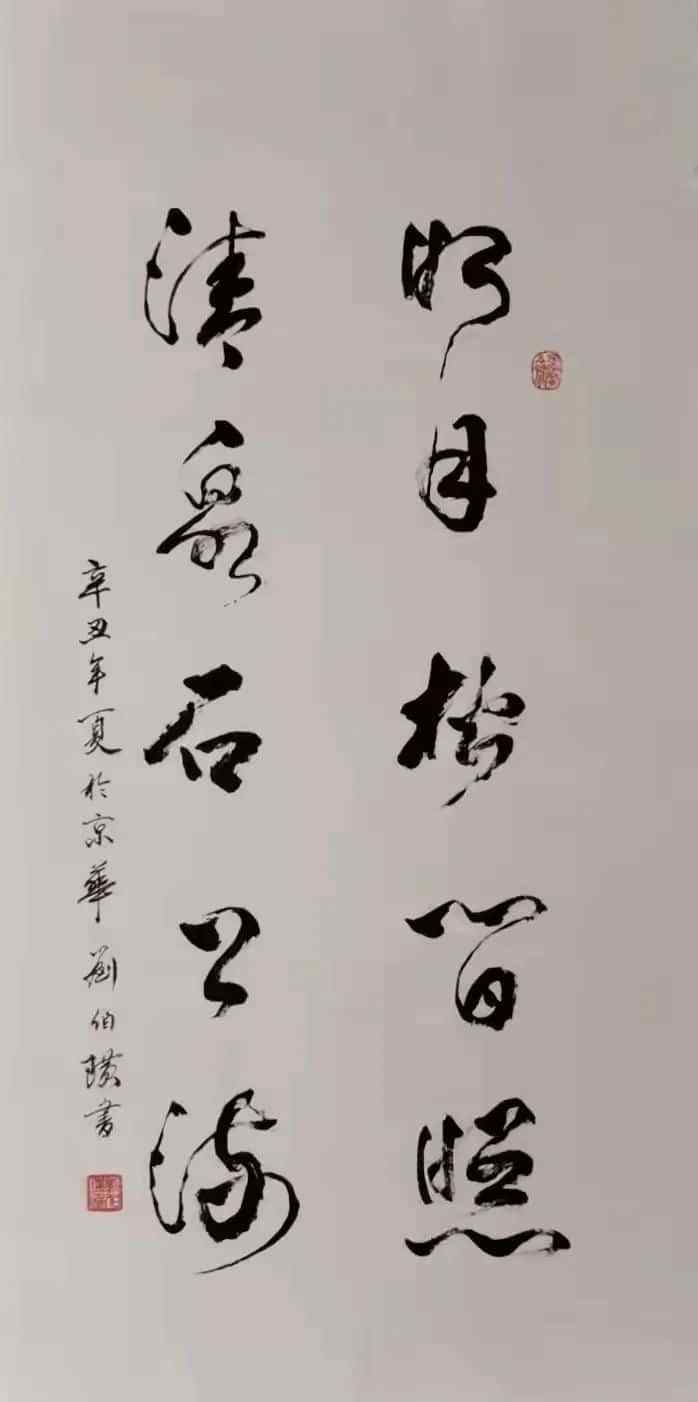 明月松間照
清泉石上流
辛丑年夏於京華劉伯璜書